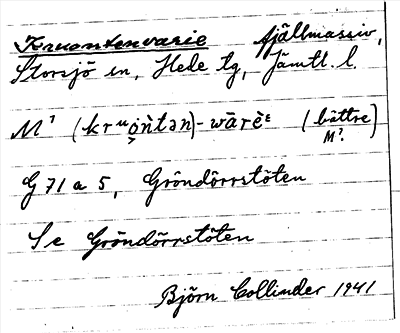 Kruontenvarie fjällmassiv,
Storsjö sn, Hede tg, Jämtl. l.
M¹ (kruo̜ǹtən)-wārèᵋ (bättre
M².)
G 71 a 5, Gröndörrstöten
Se Gröndörrstöten
Björn Collinder 1941